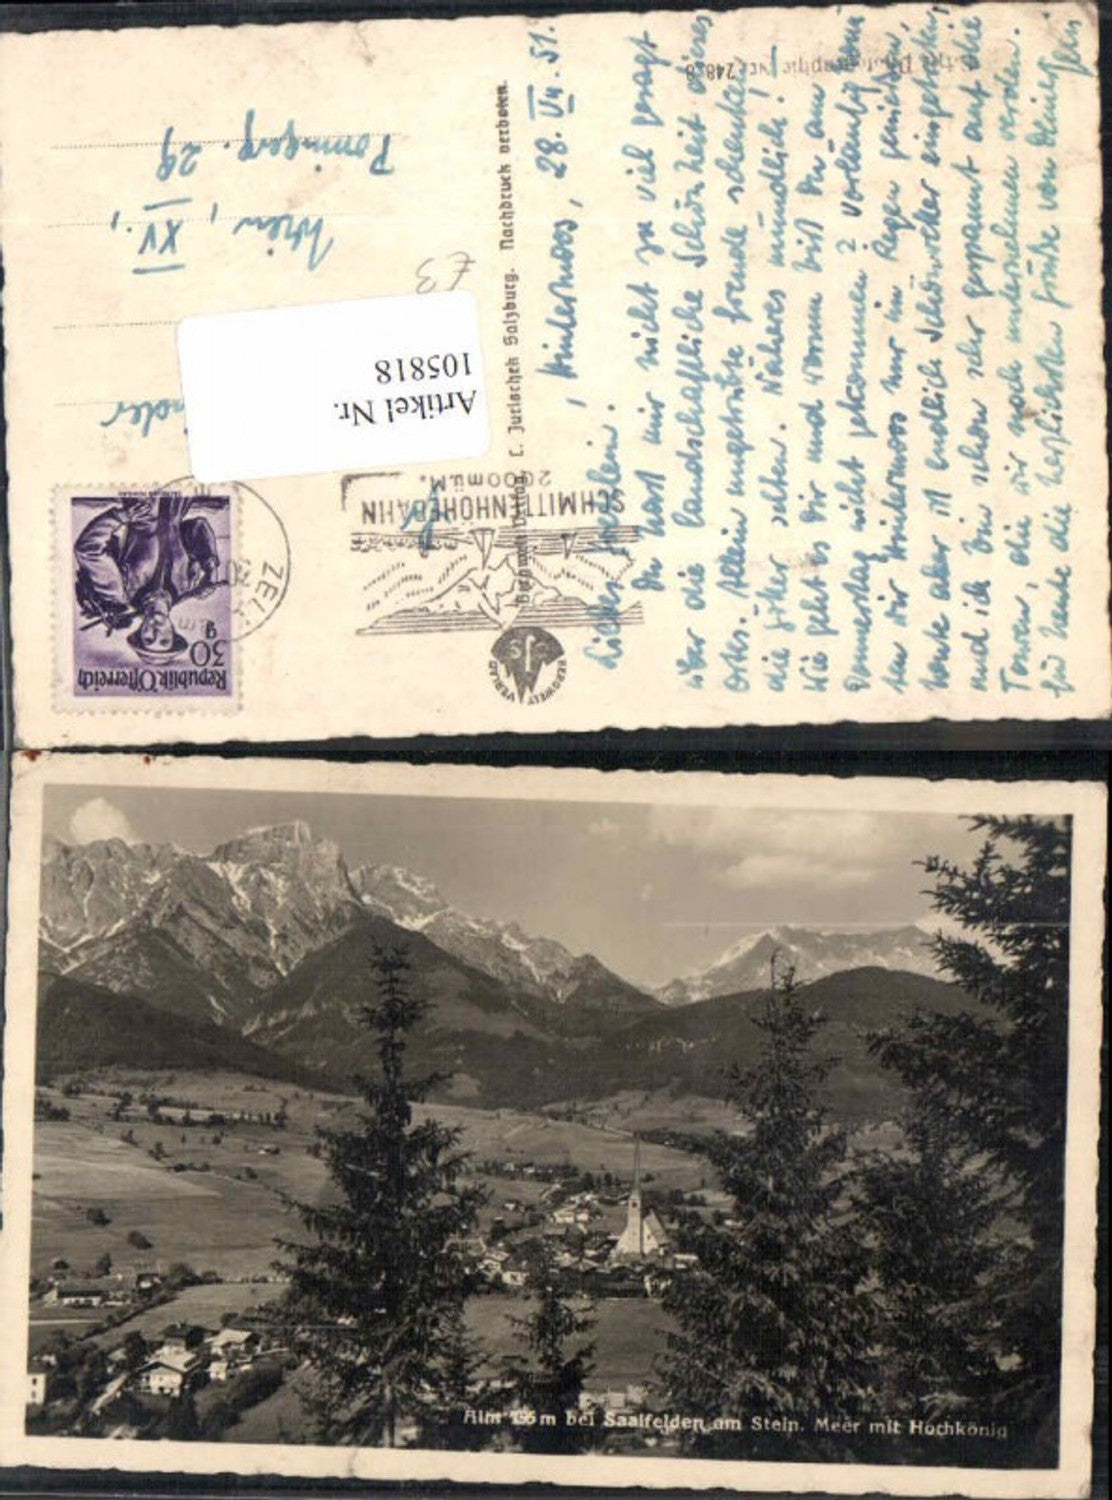 Hintermoos, 28. VII. 51.
Du hast mir nicht zu viel gesagt
über die landschaftliche Schönheit dieses
Ortes. Allein ungetrübte Freude schenkten
die Götter selten. Näheres mündlich!
Wie geht es Dir und warum bist Du am
Donnerstag nicht gekommen? Vorläufig
wir Hintermoos nur im Regen genießen,
heute aber ist endlich Schönwetter eingetreten,
und ich bin schon sehr gespannt auf die
Touren, die wir noch unternehmen werden.
für heute die herzlichsten Grüße von Deinem
Echte Photographie Nr. 248
Bergwelt-Verlag C. Jurischek Salzburg. Nachdruck verboten.
BERGWELT VERLAG
SCHMITTENHÖHEBAHN
2000 m ü. M.
ZELL
Republik Österreich
30 g
Artikel Nr.
105818
£3
Wien, XV.,
29
Alm bei Saalfelden am Stein. Meer mit Hochkönig